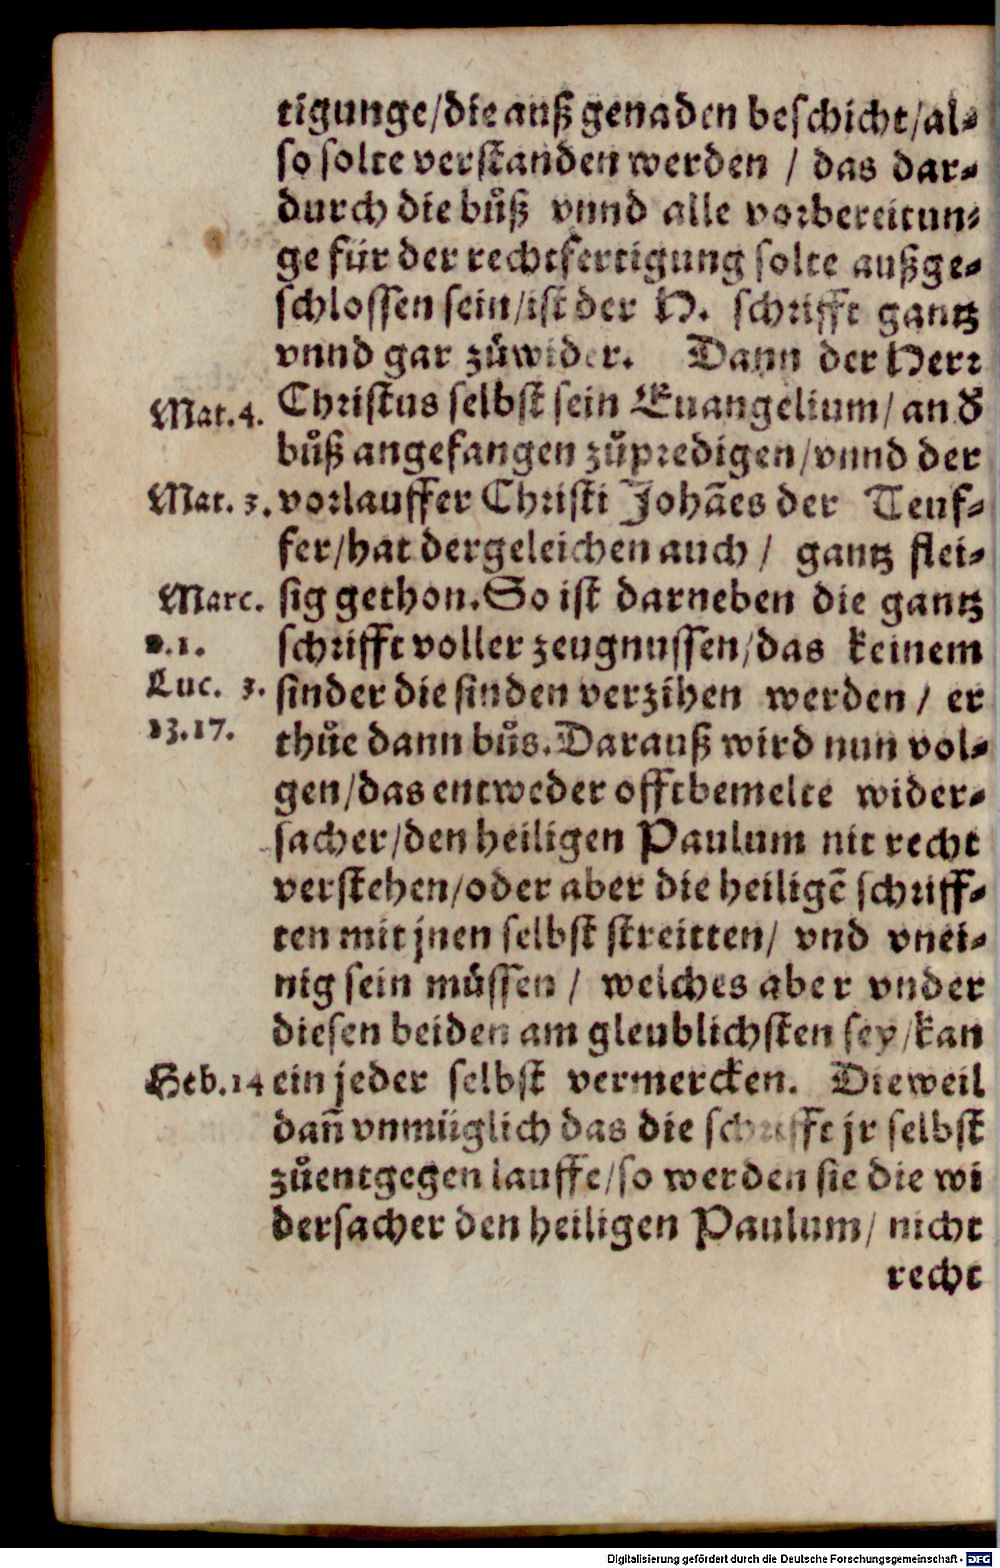 tigunge/die auß genaden beschicht/al⸗
so solte verstanden werden / das dar⸗
durch die bůß vnnd alle vorbereitun⸗
ge für der rechtfertigung solte außge⸗
schlossen sein/ist der H. schrifft gantz
vnnd gar zůwider. Dann der Herr
Mat.4. Christus selbst sein Euangelium/ an d̕
bůß angefangen zůpredigen/vnnd der
Mat. 3. vorlauffer Christi Johães der Teuf⸗
fer/hat dergeleichen auch / gantz flei⸗
Marc. sig gethon. So ist darneben die gantz
v.1. schrifft voller zeugnussen/das keinem
Luc. 3. sinder die sinden verzihen werden / er
13.17. thůe dann bůs. Darauß wird nun vol⸗
gen/das entweder offtbemelte wider⸗
sacher/den heiligen Paulum nit recht
verstehen/oder aber die heiligẽ schriff⸗
ten mit jnen selbst streitten/ vnd vnei⸗
nig sein müssen / welches aber vnder
diesen beiden am gleublichsten sey/kan
Heb.14 ein jeder selbst vermercken. Dieweil
dañ vnmüglich das die schrifft jr selbst
zůentgegen lauffe/so werden sie die wi
dersacher den heiligen Paulum/ nicht
recht
Digitalisierung gefördert durch die Deutsche Forschungsgemeinschaft - DFG